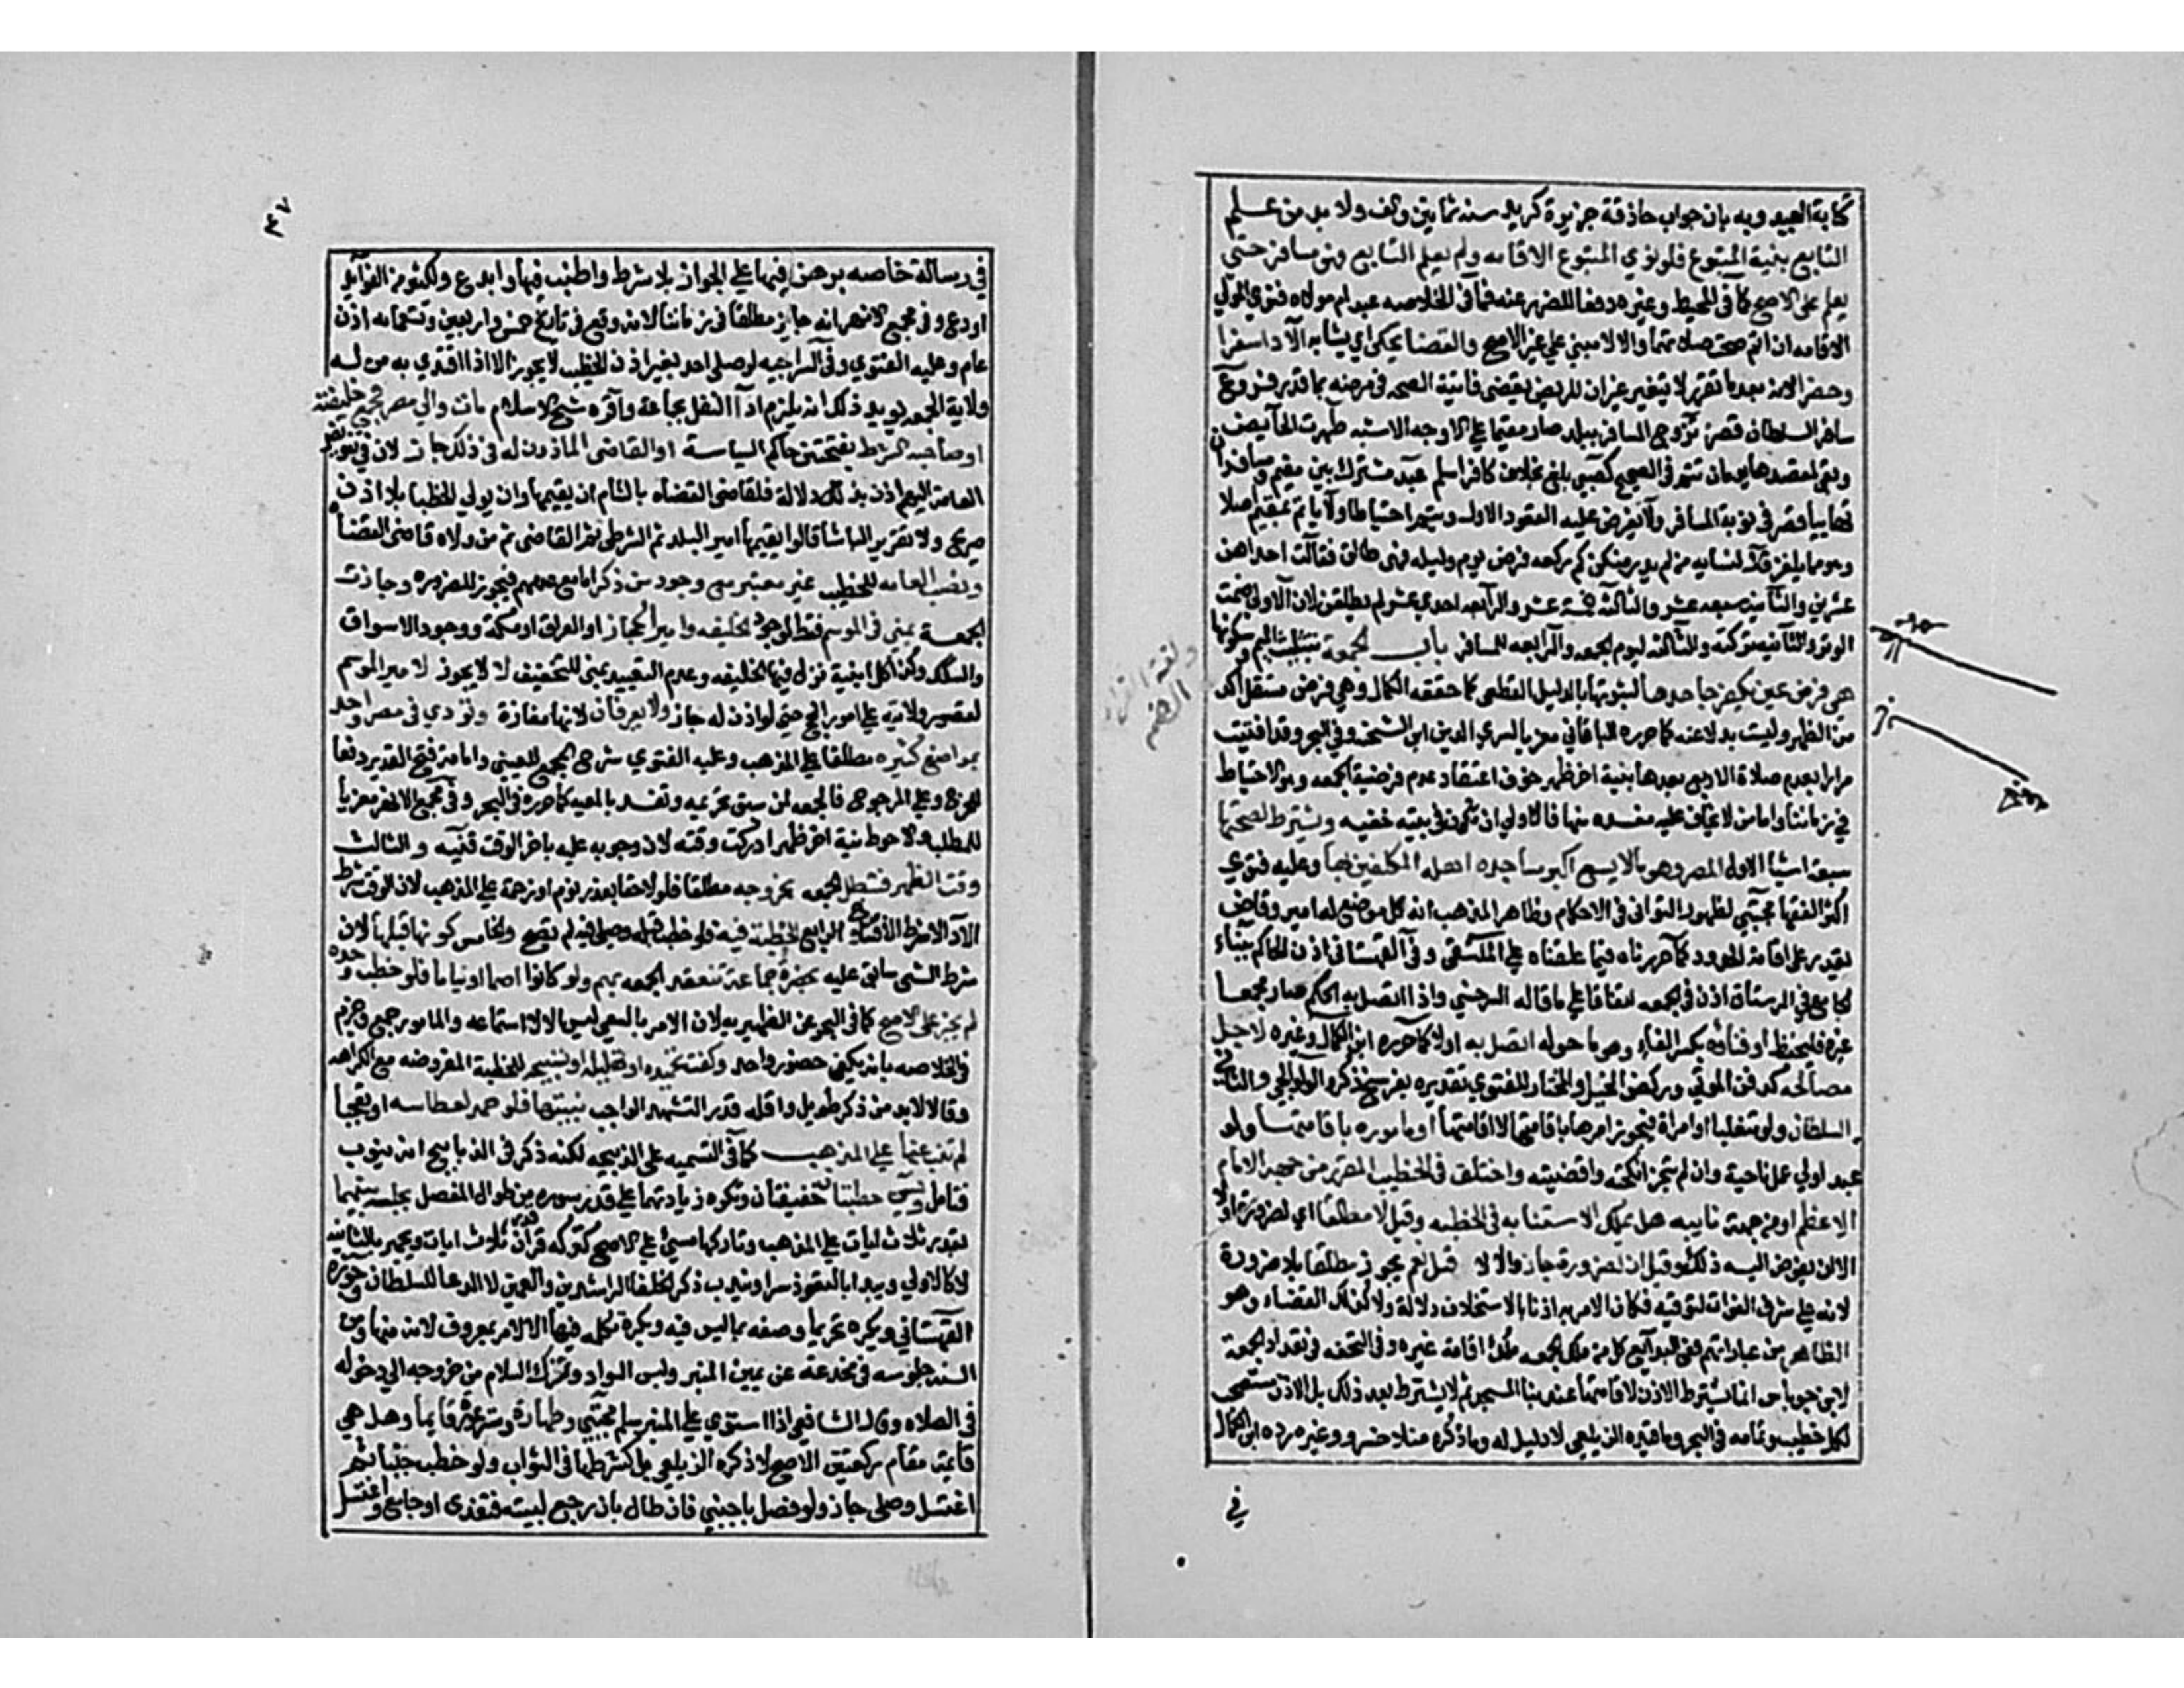 كتابة العبيد وبه بان جواب حادثة جزيرة كريد سنة ثمانين والف ولا بد من علم
التابع بنية المتبوع فلو نوي المتبوع الاقامه ولم يعلم التابع فهو مسافر حتى
يعلم على الاصح كما في المحيط وغيره دفعا للضرر عنه فما في الخلاصه عبد ام مولاه فنوي المولي
الاقامه ان اتم صحت صلاتهما والا لا مبني علي غير الاصح والقضا يحكي اي يشابه الادا سفرا
وحضرا لانه بعد ما تقرر لا يتغير غير ان المريض يقضي فايتة الصحه في مرضه بما قدر فروع
سافر السلطان قصر تزوج المسافر ببلد صار مقيما علي الاوجه الاستبه طهرت الحايض
وبقي لمقصدها يومان تتم في الصحيح كصبي بلغ بخلاف كافر اسلم عبد مشترك بين مقيم ومسافر ان
تهاييا قصر في نوبة المسافر والا يفرض عليه القعود الاول ويتم احتياطا ولا ياتم بمقيم اصلا
وهو مما يلغز قال لنسايه من لم يدر منكن كم ركعه فرض يوم وليله فهي طالق فقالت احداهن
عشرين والثانيه سبعه عشر والثالثه خمسة عشر والرابعه احدي عشر لم يطلقن لان الاولي ضمت
الوتر والثانيه تركته والثالثه ليوم الجمعه والرابعه للمسافر باب الجمعة بتثليث الميم وسكونها
هي فرض عين يكفر جاحدها لثبوتها بالدليل القطعي كما حققه الكمال وهي فرض مستقل اكد
من الظهر وليست بدلا عنه كما حرره الباقاني معزيا لسري الدين ابن الشحنه وفي البحر وقد افتيت
مرارا بعدم صلاة الاربع بعدها بنية اخر ظهر خوف اعتقاد عدم فرضية الجمعه وهو الاحتياط
في زماننا واما من لا يخاف عليه مفسده منها فالاولي ان تكون في بيته خفيه ويشترط لصحتها
سبعة اشيا الاول المصر وهو ما لا يسع اكبر مساجده اهله المكلفين بها وعليه فتوي
اكثر الفقها مجتبي لظهور التواني في الاحكام وظاهر المذهب انه كل موضع له امير وقاض
يقدر على اقامة الحدود كما حررناه فيما علقناه علي الملتقي وفي القهستاني اذن الحاكم ببناء
الجامع في الرستاق اذن في الجمعه اتفاقا علي ما قاله السرخسي واذا اتصل به الحكم صار مجمعا
عليه فليحفظ او فناؤه بكسر الفاء وهو ما حوله اتصل به اولا كما حرره ابن الكمال وغيره لاجل
مصالحه كدفن الموتي وركض الخيل والمختار للفتوي تقديره بفرسخ ذكره الولوالجي والثاني
السلطان ولو متغلبا او امراة فيجوز امرها باقامتها لا اقامتها او ماموره باقامتها ولو
عبد اولي عمل ناحية وان لم تجز انكحته واقضيته واختلف في الخطيب المقرر من جهة الامام
الاعظم او من جهة نايبه هل يملك الاستنابه في الخطبه وقيل لا مطلقا اي لضرورة اولا
الا ان يفوض اليه ذلك وقيل ان لضرورة جاز والا لا قيل نعم يجوز مطلقا بلا ضرورة
لانه علي شرف الفوات لتوقيته فكان الامر به اذنا بالاستخلاف دلالة ولا كذلك القضاء وهو
الظاهر من عباراتهم ففي البدايع كل من ملك الجمعه ملك اقامة غيره وفي التحفه في تعداد الجمعة
لابن جرباش انما يشترط الاذن لاقامتها عند بنا المسجد ثم لا يشترط بعد ذلك بل الاذن مستصحب
لكل خطيب وتمامه في البحر وما قيده الزيلعي لا دليل له وما ذكره منلا خسرو وغيره رده ابن الكمال
في
في رسالة خاصه برهن فيها علي الجواز بلا شرط واطنب فيها وابدع ولكثير من الفوايد
اودع وفي مجمع الانهر انه جايز مطلقا في زماننا لانه وقع في تاريخ خمس واربعين وتسعمايه اذن
عام وعليه الفتوي وفي السراجيه لو صلى احد بغير اذن الخطيب لا يجوز الا اذا اقتدي به من له
ولاية الجمعه يويد ذلك انه يلزم ادا النفل بجماعة واقره شيخ الاسلام مات والي مصر فجمع خليفته
او صاحب الشرط بفتحتين حاكم السياسة او القاضي الماذون له في ذلك جاز لان في تفويض
العامة اليهم اذن بذلك دلالة فلقاضي القضاه بالشام ان يقيمها وان يولي الخطبا بلا اذن
صريح ولا تقرير الباشا قالوا يقيمها امير البلد ثم الشرطي ثم القاضي ثم من ولاه قاضي القضاة
ونصب العامه الخطيب غير معتبر مع وجود من ذكر اما مع عدمهم فيجوز للضروره وجازت
الجمعة بمني في الموسم فقط لوجود الخليفه وامير الحجاز او العراق او مكة ووجود الاسواق
والسكك وكذا كل ابنية نزل فيها الخليفه وعدم التعييد بمني للتخفيف لا لا يجوز لامير الموسم
لقصر ولايته علي امور الحج حتي لو اذن له جاز ولا بعرفات لانها مفازة وتؤدي في مصر واحد
بمواضع كثيره مطلقا علي المذهب وعليه الفتوي شرح المجمع للعيني وامامة فتح القدير دفعا
للحرج وعلي المرجوح فالجمعه لمن سبق تحريمه وتفسد بالمعيه كما حرره في البحر وفي مجمع الانهر معزيا
للمطلب والاحوط نية اخر ظهر ادركت وقته لان وجوبه عليه باخر الوقت قنيه والثالث
وقت الظهر فتبطل الجمعه بخروجه مطلقا فلو لاحقا بعذر نوم او زحمة علي المذهب لان الوقت شرط
الادا لا شرط الافتتاح الرابع الخطبة فيه فلو خطب قبله وصلى فيه لم تصح والخامس كونها قبلها لان
شرط الشي سابق عليه بحضرة جماعة تنعقد الجمعه بهم ولو كانوا اصما او نياما فلو خطب وحده
لم يجز على الاصح كما في البحر عن الظهيريه لان الامر بالسعي ليس الا لاستماعه والمامور جمع وجزم
في الخلاصه بانه يكفي حضور واحد وكفت تحميده او تهليله او تسبيحه للخطبة المفروضه مع الكراهه
وقالا لا بد من ذكر طويل واقله قدر التشهد الواجب بنيتها فلو حمد لعطاسه او تعجبا
لم تنب عنها علي المذهب كما في التسميه على الذبيحه لكنه ذكر في الذبايح انه ينوب
فتامل ويسن خطبتان خفيفتان وتكره زيادتهما علي قدر سوره من طوال المفصل بجلسه بينهما
بقدر ثلاث ايات علي المذهب وتاركها مسئ علي الاصح كتركه قراة قدر ثلاث ايات ويجهر بالثانيه
لا كالاولي ويبدا بالتعوذ سرا ويندب ذكر الخلفا الراشدين والعمين لا الدعا للسلطان وجوزه
القهستاني ويكره تحريما وصفه بما ليس فيه ويكره تكلمه فيها الا لامر بمعروف لانه منها ومن
السنه جلوسه في مخدعه عن يمين المنبر ولبس السواد وترك السلام من خروجه الي دخوله
في الصلاه وقال الشافعي اذا استوي علي المنبر سلم مجتبي وطهارة وستر عورة قايما وهل هي
قايمة مقام ركعتين الاصح لا ذكره الزيلعي بل كشطرها في الثواب ولو خطب جنبا ثم
اغتسل وصلى جاز ولو فصل باجنبي فان طال بان رجع لبيته فتغدى او جامع واغتسل